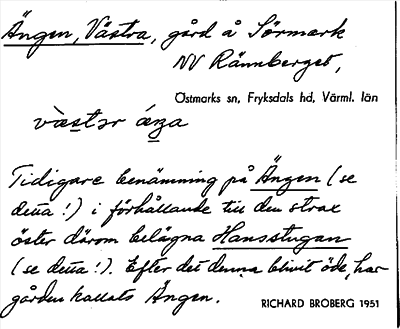 Ängen, Västra, gård å Sörmark
NV Rännberget,
Östmarks sn, Fryksdals hd, Värml. län
västər äŋa
Tidigare benämning på Ängen (se
detta!) i förhållande till den strax
öster därom belägna Hansstugan
(se detta!). Efter det denna blivit öde, har
gården kallats Ängen.
RICHARD BROBERG 1951